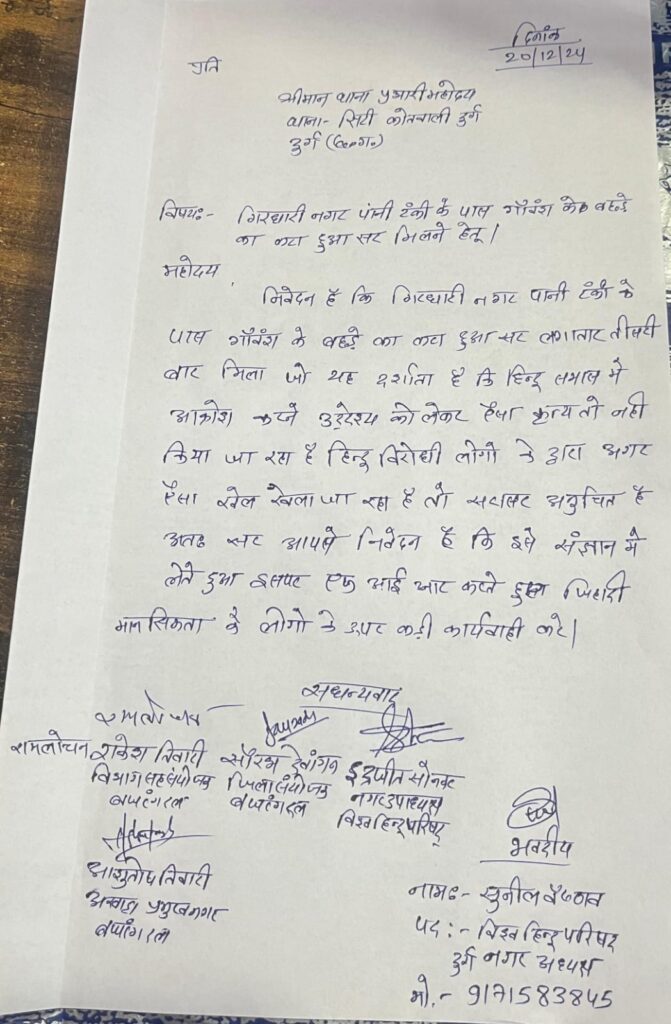 दिनांक
20/12/24
प्रति
श्रीमान थाना प्रभारी महोदय
थाना- सिटी कोतवाली दुर्ग
दुर्ग (छ०ग०)
विषय:- गिरधारी नगर पानी टंकी के पास गौवंश के बछड़े
का कटा हुआ सर मिलने हेतू।
महोदय,
निवेदन है कि गिरधारी नगर पानी टंकी के
पास गौवंश के बछड़े का कटा हुआ सर लगातार तीसरी
बार मिला जो यह दर्शाता है कि हिन्दू समाज मे
आक्रोश करने उद्देश्य को लेकर ऐसा कृत्य तो नही
किया जा रहा है हिन्दू विरोधी लोगो के द्वारा अगर
ऐसा खेल खेला जा रहा है तो सरासर अनुचित है
अतः सर आपसे निवेदन है कि इसे संज्ञान मे
लेते हुआ इसपर एफ आई आर करते हुए जिहादी
मानसिकता के लोगो के उपर कड़ी कार्यवाही करे।
सधन्यवाद
रामलोचन
रामलोचन राकेश तिवारी सौरभ देवांगन इंद्रजीत सोनकर
विभाग सह संयोजक जिला संयोजक नगर उपाध्यक्ष
बजरंगदल बजरंगदल विश्व हिन्दू परिषद्
भवदीय
आशुतोष तिवारी
अखाड़ा प्रमुख नगर
बजरंगदल
नामः- सुनील वैष्णव
पद :- विश्व हिन्दू परिषद
दुर्ग नगर अध्यक्ष
मो.- 9171583845